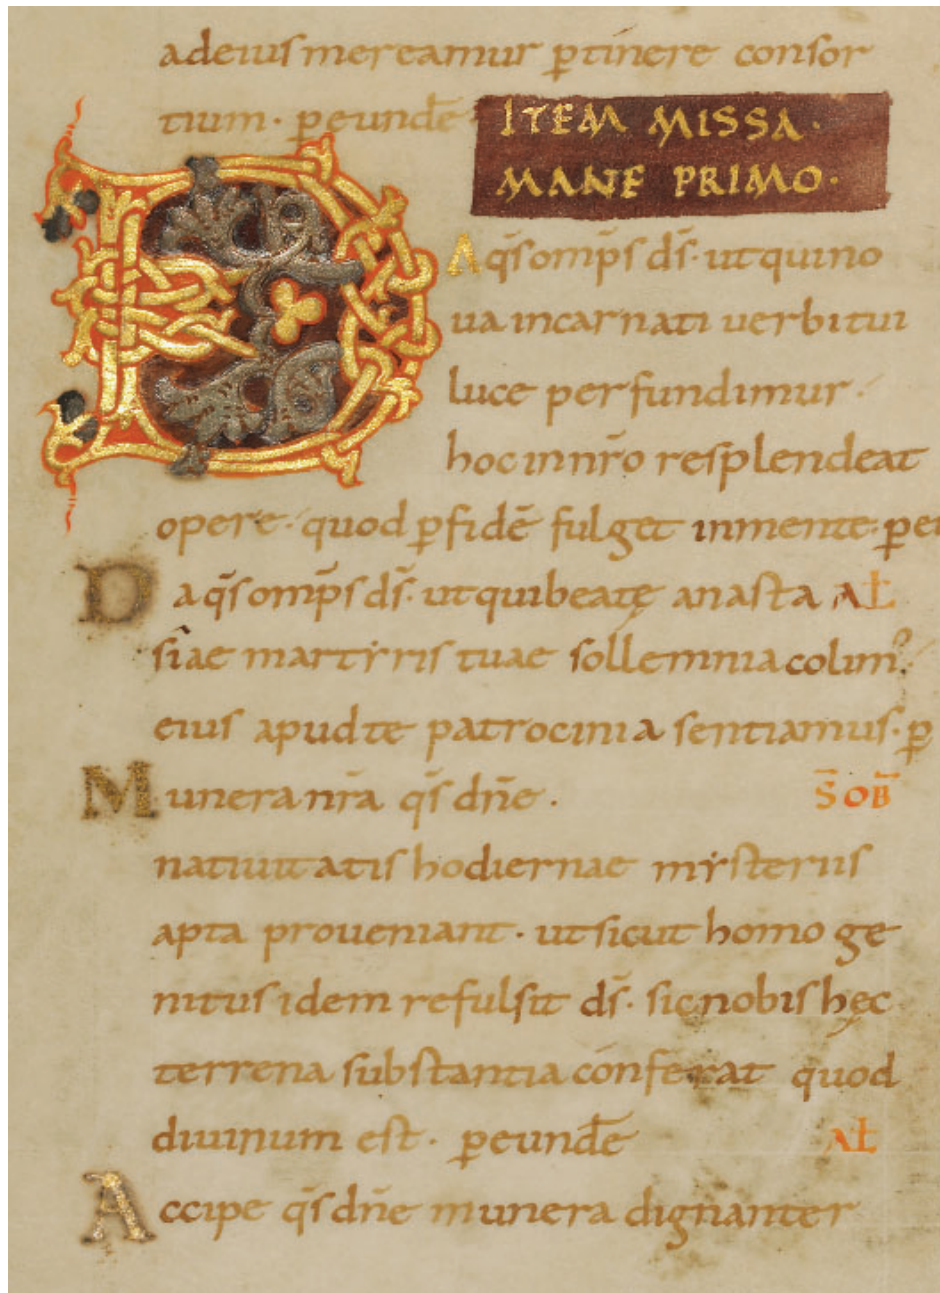 ad eius mereamur ꝑtinere consor
tium · ꝑ eundē
ITEM MISSA ·
MANE PRIMO ·
DA q̄s omp̄s ds̄ · ut qui no
ua incarnati uerbi tui
luce perfundimur ·
hoc in nr̄o resplendeat
opere · quod ꝑ fidē fulget in mente · ꝑ eu
Da q̄s omp̄s ds̄ · ut qui beatę anasta AL̄
siae martyris tuae sollemnia colim᾽ ·
eius apud te patrocinia sentiamus · ꝑ
Munera nr̄a q̄s dn̄e · S̄ OB̄
natiuitatis hodiernae mẏsteriis
apta proueniant · ut sicut homo ge
nitus idem refulsit ds̄ · sic nobis hęc
terrena substantia conferat quod
diuinum est · ꝑ eundē AL̄
Accipe q̄s dn̄e munera dignanter